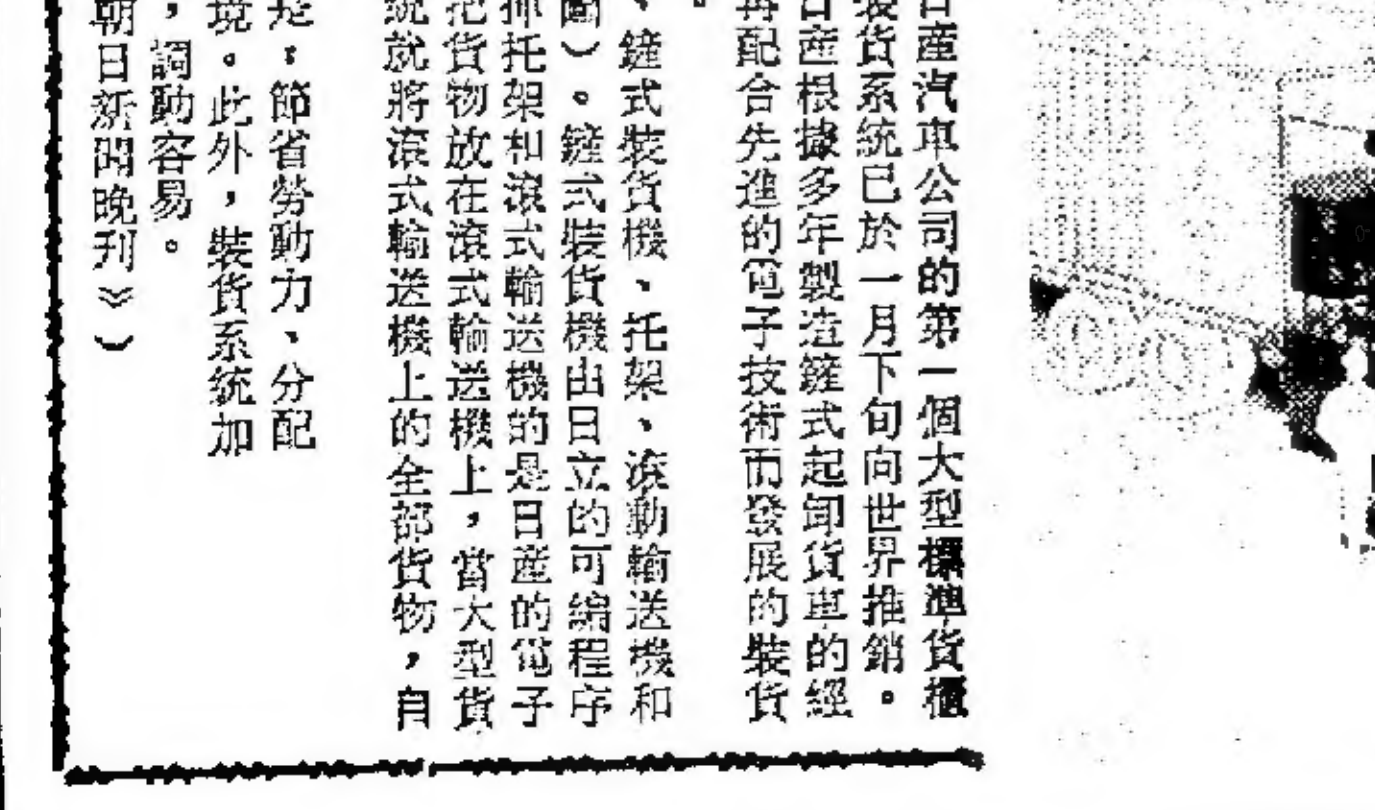 日産汽車公司的第一個大型標準貨櫃
裝貨系統已於一月下旬向世界推銷。
日産根據多年製造鏟式起卸貨車的經
再配合先進的電子技術而發展的裝貨
。
、鏟式裝貨機、托架、滾動輸送機和
圖）。鏟式裝貨機由日立的可編程序
揮托架和滾式輸送機的是日産的電子
把貨物放在滾式輸送機上，當大型貨
統就將滾式輸送機上的全部貨物，自
是：節省勞動力、分配
境。此外，裝貨系統加
，調動容易。
朝日新聞晚刊》）